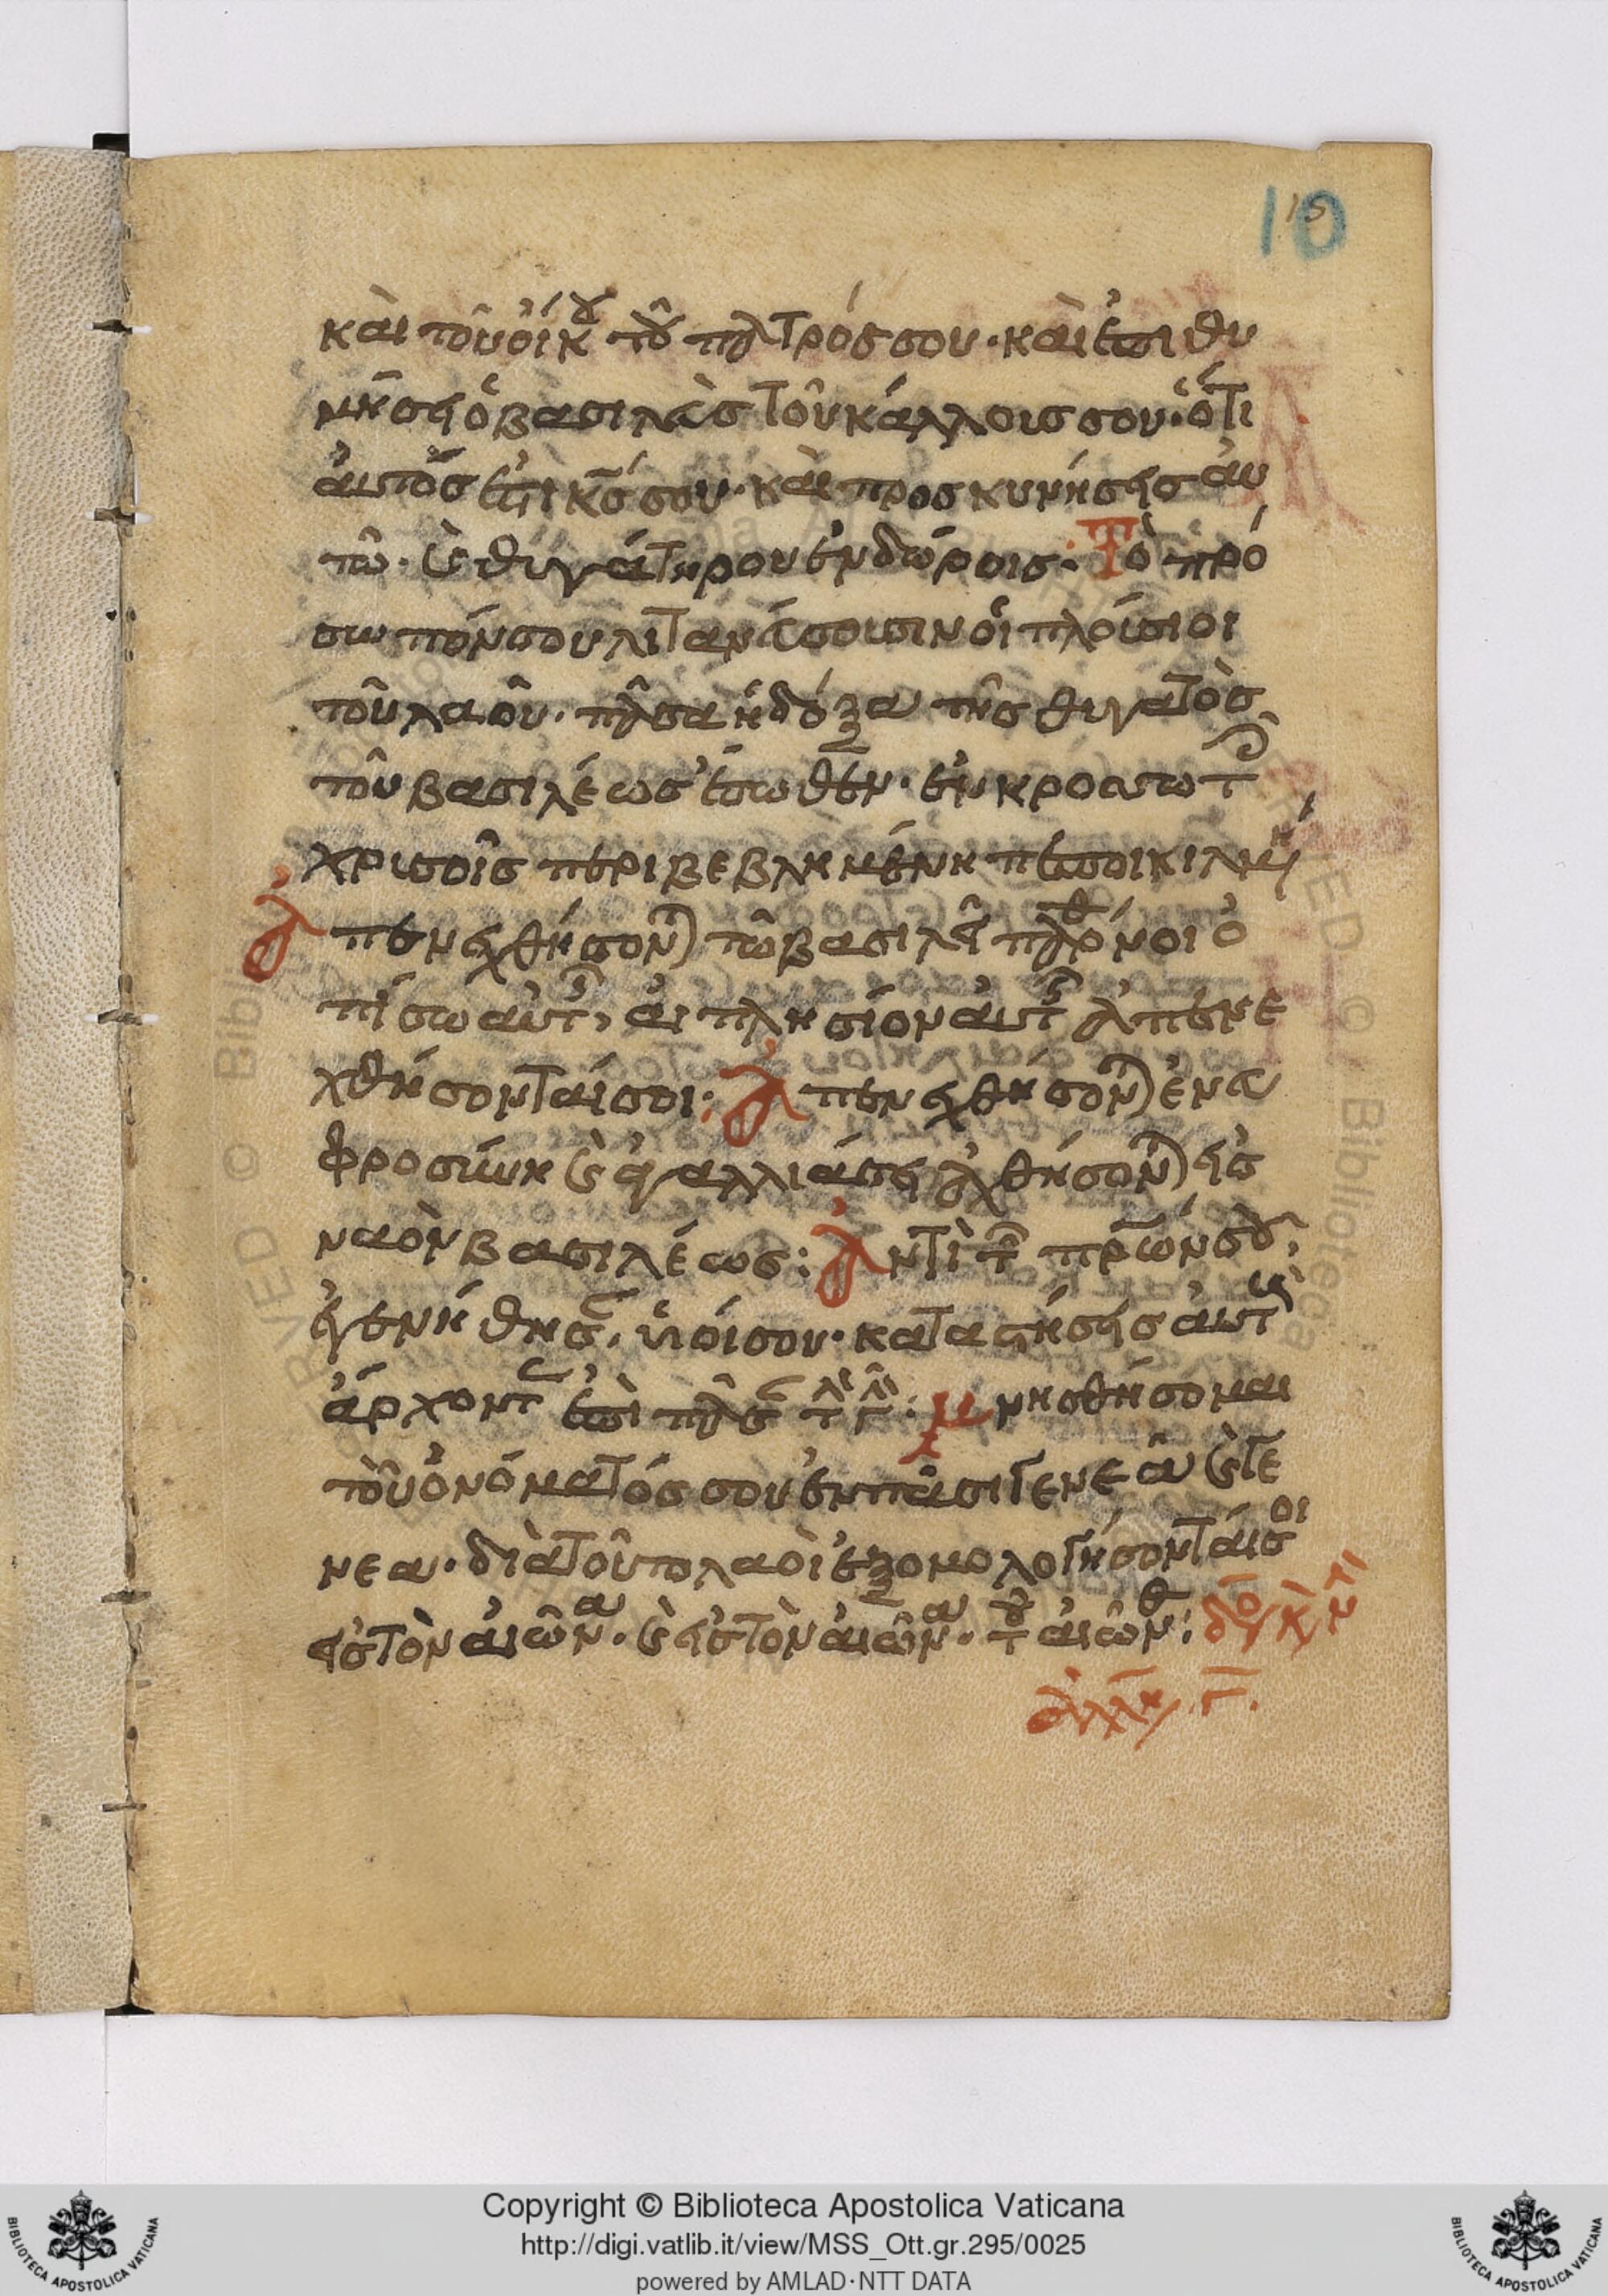 10
15
καὶ τοῦ οἴκου τοῦ πατρός σου· καὶ ἐπιθυ
μήσει ὁ βασιλεὺς τοῦ κάλλους σου· ὅτι
αὐτός ἐστι κς σου· καὶ προσκυνήσεις αὐ
τῶ· καὶ θυγάτηρ ουἐν δώροις· Τὸ πρό
σωπόν σου λιτανεύσουσιν οἱ πλούσιοι
τοῦ λαοῦ· πᾶσα ἡ δόξα τῆς θυγατρὸς
τοῦ βασιλέως ἔσωθεν· ἐν κροσσωτ
χρυσοῖς περιβεβλημένη πεποικιλμ
Ἀπενεχθήσονται τῶ βασιλεῖ παρθένοι ὀ
πίσω αὐτ, αἱ πλησίον αὐτ ἀπενε
χθήσονταί σοι: Ἀπενεχθήσονται ἐν ευ
φροσύνη καὶ ἀγαλλιάσει ἀχθήσονται εἰς
ναὸν βασιλέως: Ἀντὶ τ πρων σου,
ἐγενήθησ, υἱοί σου· καταστήσεις αὐτ
ἄρχοντ ἐπὶ πᾶς τ γ: Μνησθήσομαι
τοῦ ὀνόματός σου ἐν πάσι γενεᾶ καὶ γε
νεα· διὰ τοῦτο λαοὶ ἐξομολογήσονταί σοι
εἰς τὸν αἰῶνα· καὶ εἰς τὸν αἰῶνα· τοῦ αἰῶν: δο κ ν
ἀλλη Γ.
Copyright © Biblioteca Apostolica Vaticana
http://digi.vatlib.it/view/MSS_Ott.gr.295/0025
powered by AMLAD·NTT DATA
BIBLIOTECA APOSTOLICA VATICANA
BIBLIOTECA APOSTOLICA VATICANA